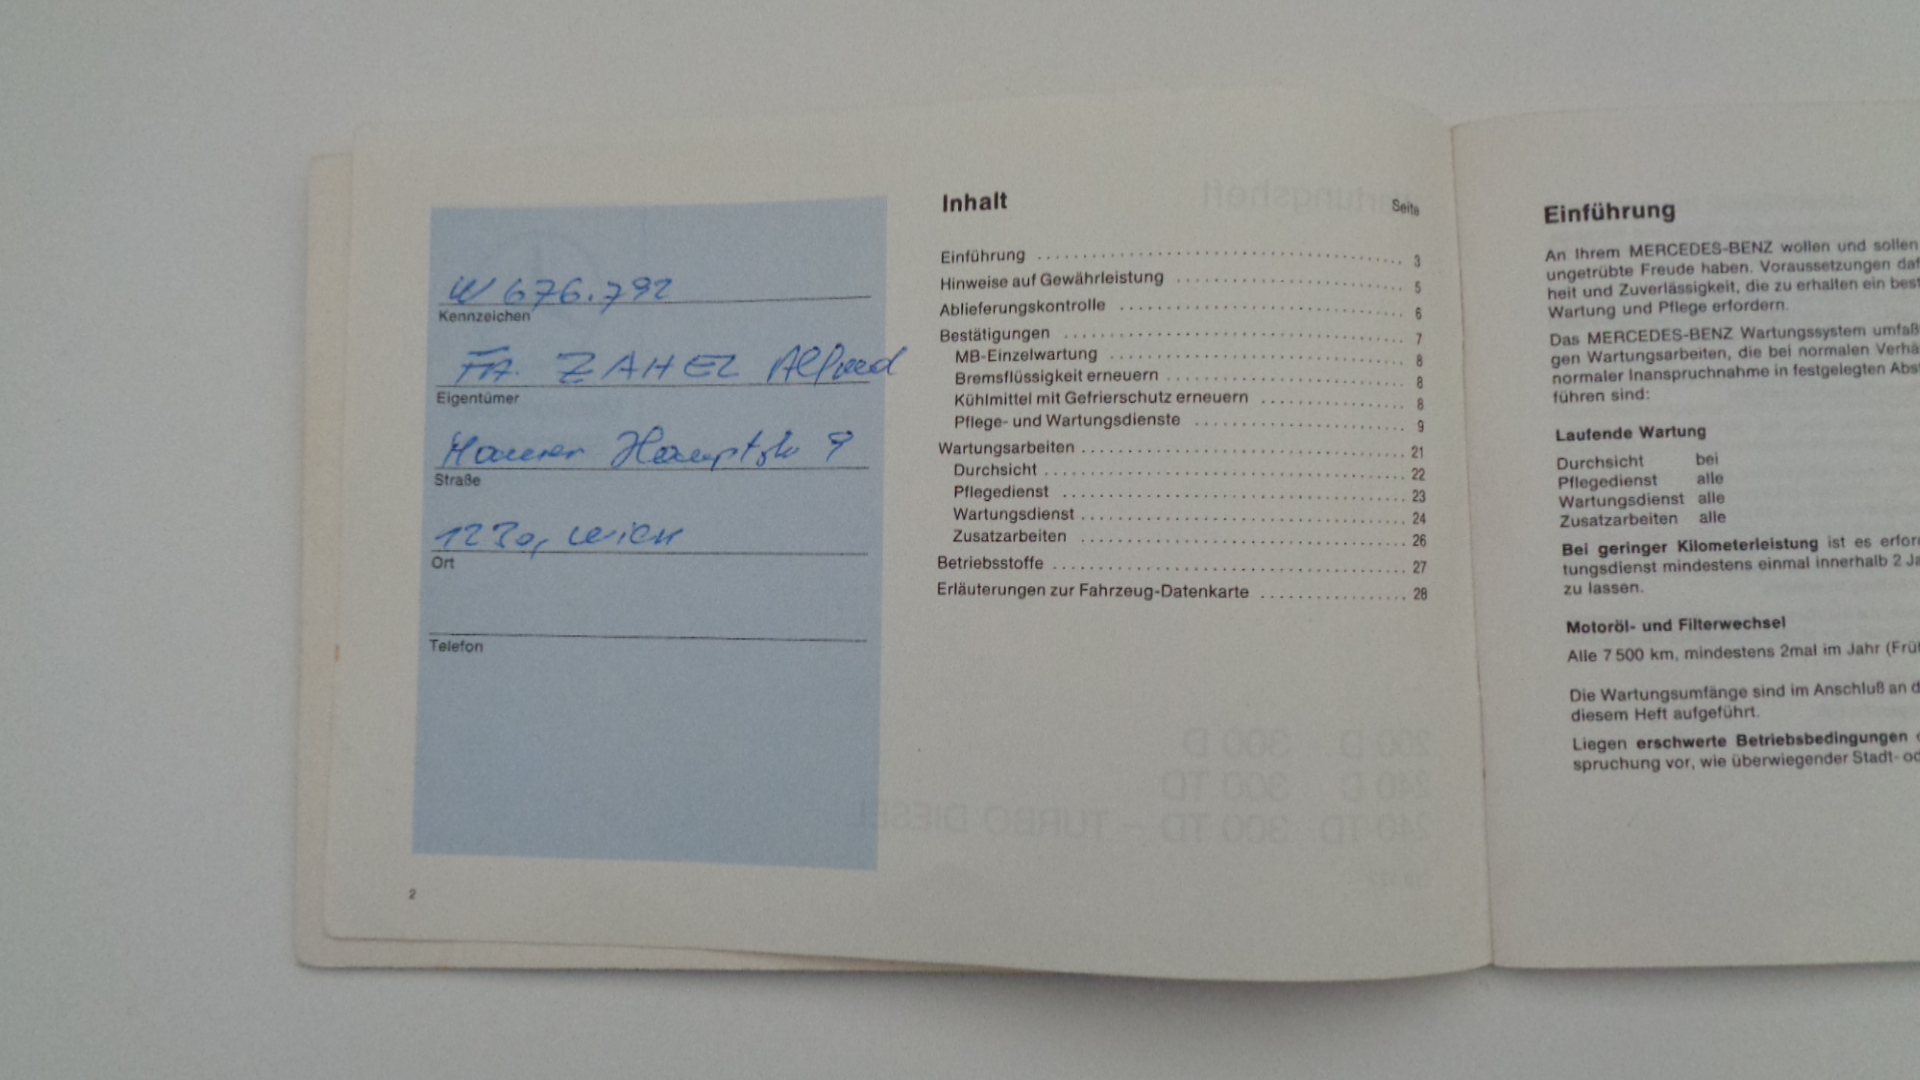 W 676.792
Kennzeichen
FA. ZAHEL Alfred
Eigentümer
Maurer Hauptstr 9
Straße
1230, Wien
Ort
Telefon
2
Inhalt
Seite
Einführung 3
Hinweise auf Gewährleistung 5
Ablieferungskontrolle 6
Bestätigungen 7
MB-Einzelwartung 8
Bremsflüssigkeit erneuern 8
Kühlmittel mit Gefrierschutz erneuern 8
Pflege- und Wartungsdienste 9
Wartungsarbeiten 21
Durchsicht 22
Pflegedienst 23
Wartungsdienst 24
Zusatzarbeiten 26
Betriebsstoffe 27
Erläuterungen zur Fahrzeug-Datenkarte 28
Einführung
An Ihrem MERCEDES-BENZ wollen und sollen
ungetrübte Freude haben. Voraussetzungen daf
heit und Zuverlässigkeit, die zu erhalten ein best
Wartung und Pflege erfordern.
Das MERCEDES-BENZ Wartungssystem umfaß
gen Wartungsarbeiten, die bei normalen Verhä
normaler Inanspruchnahme in festgelegten Abst
führen sind:
Laufende Wartung
Durchsicht bei
Pflegedienst alle
Wartungsdienst alle
Zusatzarbeiten alle
Bei geringer Kilometerleistung ist es erfor
tungsdienst mindestens einmal innerhalb 2 Ja
zu lassen.
Motoröl- und Filterwechsel
Alle 7 500 km, mindestens 2mal im Jahr (Frü
Die Wartungsumfänge sind im Anschluß an d
diesem Heft aufgeführt.
Liegen erschwerte Betriebsbedingungen
spruchung vor, wie überwiegender Stadt- od